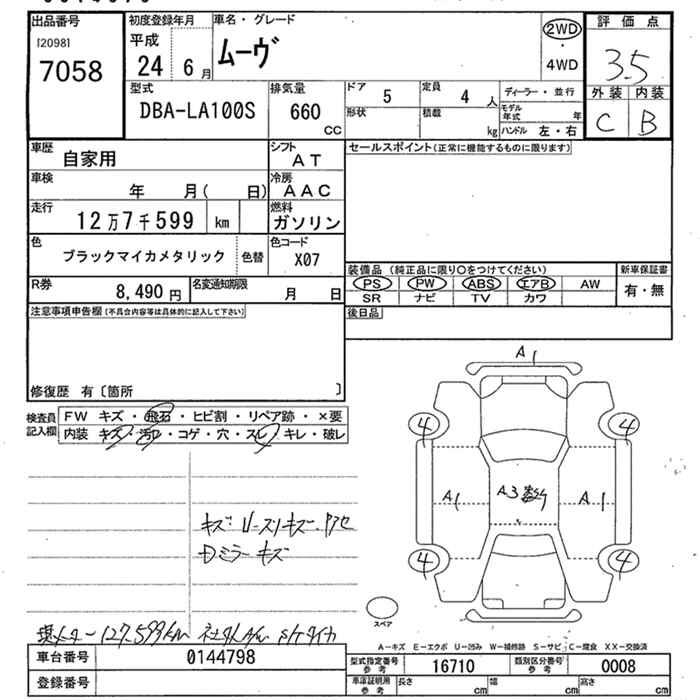 出品番号
[2098]
7058
初度登録年月
平成
24 6月
車名・グレード
ムーヴ
2WD
・
4WD
評価点
3.5
外装 内装
C B
型式
DBA-LA100S
排気量
660
CC
ドア 5
定員 4 人
形状
積載 kg
ディーラー・並行
モデル年式 年
ハンドル 左・右
車歴
自家用
シフト
AT
車検
年 月( 日)
冷房
AAC
走行
12万7千599 km
燃料
ガソリン
色
ブラックマイカメタリック
色替
色コード
X07
R券
8,490円
名変通知期限
月 日
セールスポイント(正常に機能するものに限ります)
装備品 (純正品に限り○をつけてください)
PS PW ABS エアB AW
SR ナビ TV カワ
新車保証書
有・無
後日品
注意事項申告欄(不具合内容等は具体的に記入して下さい)
修復歴 有〔箇所 〕
検査員記入欄
FW キズ・飛石・ヒビ割・リペア跡・×要
内装 キズ・汚れ・コゲ・穴・スレ・キレ・破レ
A1
4 4
A1 A3 A1
4 4
スペア
キズ U-スリキズ・アセ
Dミラーキズ
127,599km
A-キズ E-エクボ U-凹み W-補修跡 S-サビ C-腐食 XX-交換済
車台番号
0144798
登録番号
型式指定番号参考
16710
類別区分番号参考
0008
車庫証明用参考
長さ cm 幅 cm 高さ cm